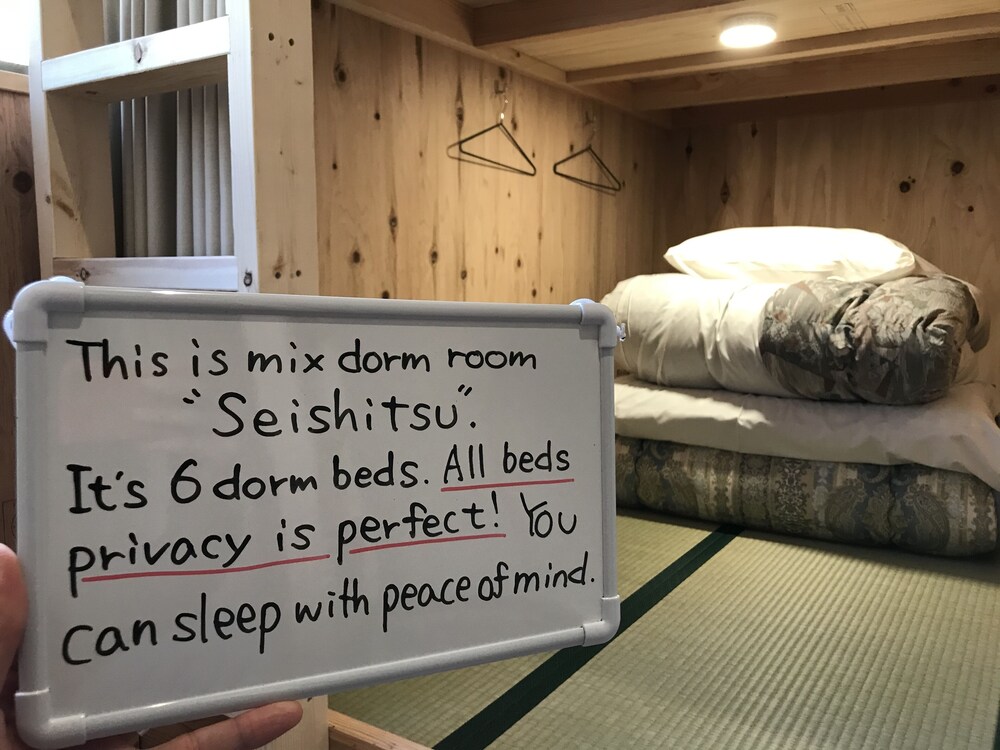 This is mix dorm room
"Seishitsu".
It's 6 dorm beds. All beds
privacy is perfect! You
can sleep with peace of mind.